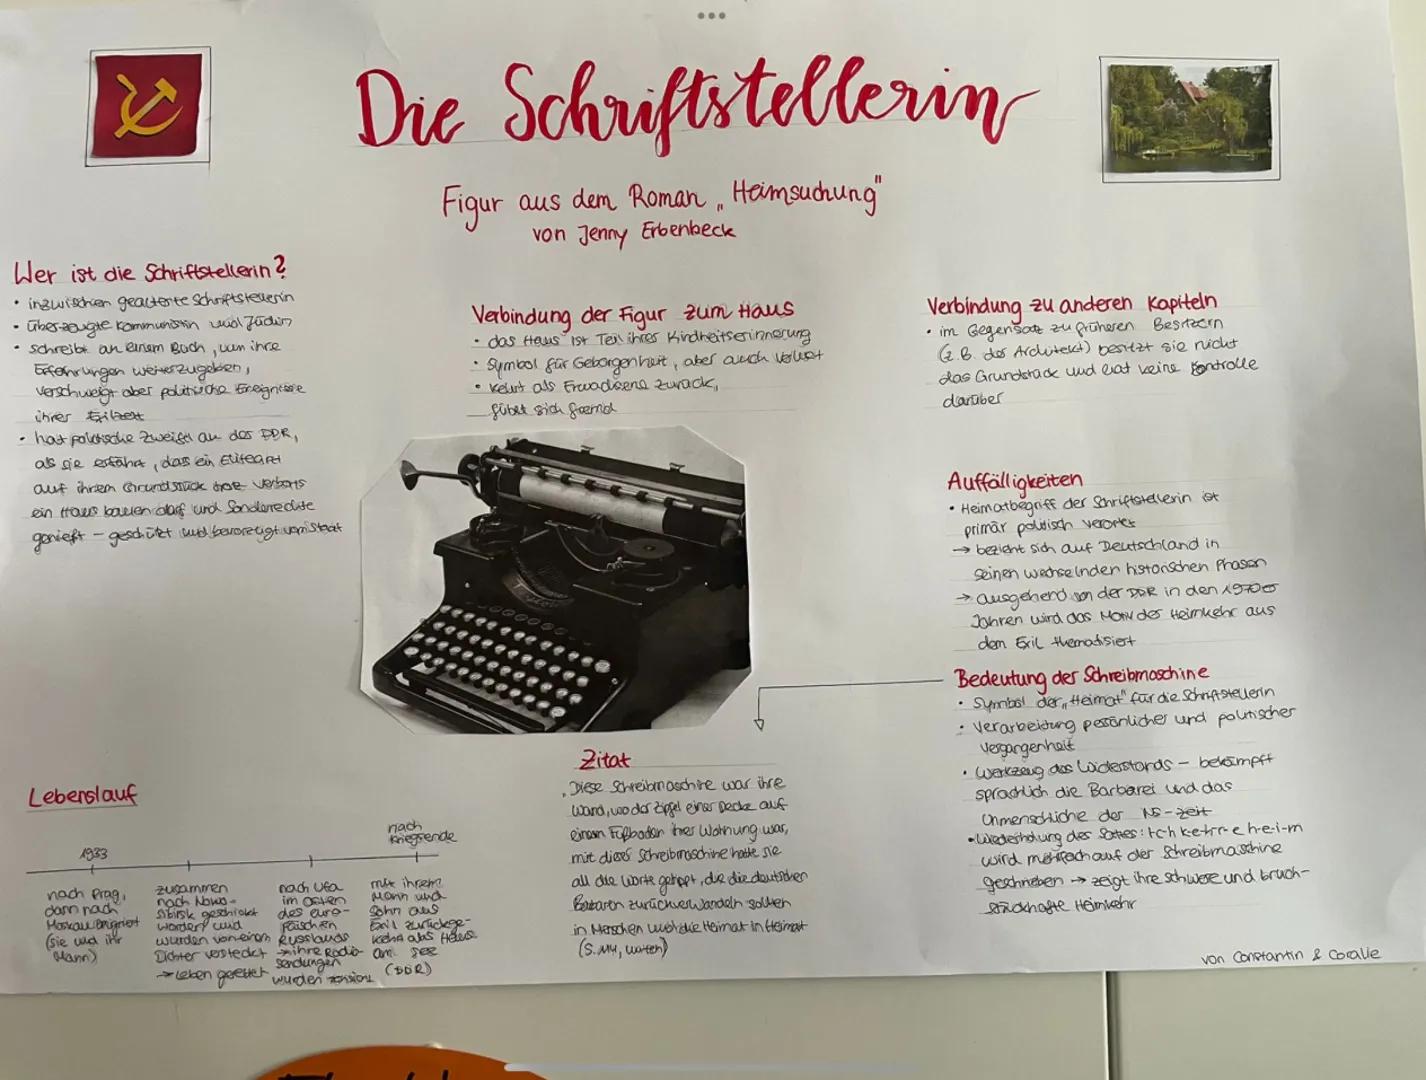 Die Schriftstellerin
Figur aus dem Roman „Heimsuchung"
von Jenny Erbenbeck
Wer ist die Schriftstellerin?
• inzwischen gealterte Schriftstellerin
• überzeugte Kommunistin und Jüdin
• schreibt an einem Buch, um ihre
Erfahrungen weiterzugeben,
verschweigt aber politische Ereignisse
ihrer Exilzeit
• hat politische Zweifel an der DDR,
als sie erfährt, dass ein
auf ihrem Grundstück
ein Haus bauen darf und Sonderrechte
genießt – geschützt und bevorzugt vom Staat
Verbindung der Figur zum Haus
• das Haus ist Teil ihrer Kindheitserinnerung
• Symbol für Geborgenheit, aber auch Verlust
• kehrt als Erwachsene zurück,
fühlt sich fremd
Verbindung zu anderen Kapiteln
• im Gegensatz zu früheren Besitzern
(z.B. der Architekt) besitzt sie nicht
das Grundstück und hat keine Kontrolle
darüber
Auffälligkeiten
• Heimatbegriff der Schriftstellerin ist
primär politisch verortet
→ bezieht sich auf Deutschland in
seinen wechselnden historischen Phasen
→ ausgehend von der DDR in den 1970er
Jahren wird das Motiv der Heimkehr aus
dem Exil thematisiert
Bedeutung der Schreibmaschine
• Symbol der „Heimat" für die Schriftstellerin
• Verarbeitung persönlicher und politischer
Vergangenheit
• Werkzeug des Widerstands – bekämpft
sprachlich die Barbarei und das
Unmenschliche der NS-Zeit
• Wiederholung des Satzes: I-c-h k-e-h-r-e h-e-i-m
wird mehrfach auf der Schreibmaschine
geschrieben → zeigt ihre schwere und bruch-
stückhafte Heimkehr
Zitat
„Diese Schreibmaschine war ihre
Wand, wo der Zipfel einer Decke auf
einem Fußboden ihre Wohnung war,
mit dieser Schreibmaschine hatte sie
all die Worte getippt, die die deutschen
Barbaren zurückverwandeln sollten
in Menschen und die Heimat in Heimat
(S. unten)
Lebenslauf
1933
nach Prag,
dann nach
Moskau emigriert
(sie und ihr
Mann)
zusammen
nach Nowo-
sibirsk geschickt
worden und
wurden von einem
Dichter versteckt
→ Leben gerettet
nach Ufa
im Osten
des euro-
päischen
Russlands
→ ihre Radio-
sendungen
wurden zensiert
nach
Kriegsende
mit ihrem
Mann und
Sohn aus
Exil zurückge-
kehrt ans Haus
am See
(DDR)
von Constantin & Coralie